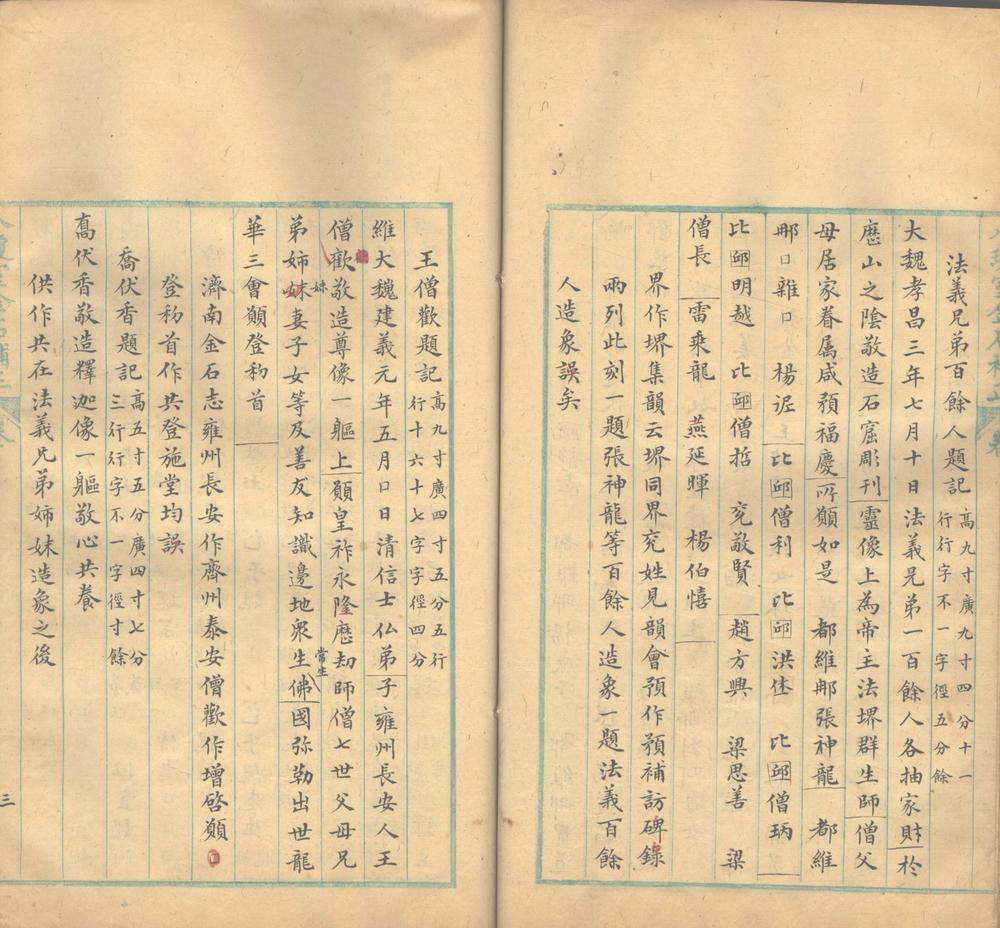 法義兄弟百餘人題記高九寸廣九寸四分十一
行行字不一字徑五分餘
大魏孝昌三年七月十日法義兄弟一百餘人各抽家財於
歷山之陰敬造石窟彫刊靈像上為帝主法堺群生師僧父
母居家眷属咸預福慶所願如是 都維那張神龍 都維
那口雜口 楊泥 比邱僧利 比邱洪 比邱僧炳
比邱明越 比邱僧哲 兖敬賢 趙方興 梁思善 梁
僧長 雷乘龍 燕延暉 楊伯憘
界作堺集韻云堺同界兖姓見韻會預作預補訪碑錄
兩列此刻一題張神龍等百餘人造象一題法義百餘
人造象誤矣
王僧歡題記高九寸廣四寸五分五行
行十六十七字字徑四分
維大魏建義元年五月口日清信士仏弟子雍州長安人王
僧歡敬造尊像一軀上願皇祚永隆歷劫師僧七世父母兄
弟姉妹妻子女等及善友知識邊地衆生常生佛國弥勒出世龍
華三會願登初首
濟南金石志雍州長安作齊州泰安僧歡作增啓願
登初首作共登施堂均誤
喬伏香題記高五寸五分廣四寸七分
三行行字不一字徑寸餘
喬伏香敬造釋迦像一軀敬心共養
供作共在法義兄弟姉妹造象之後
三